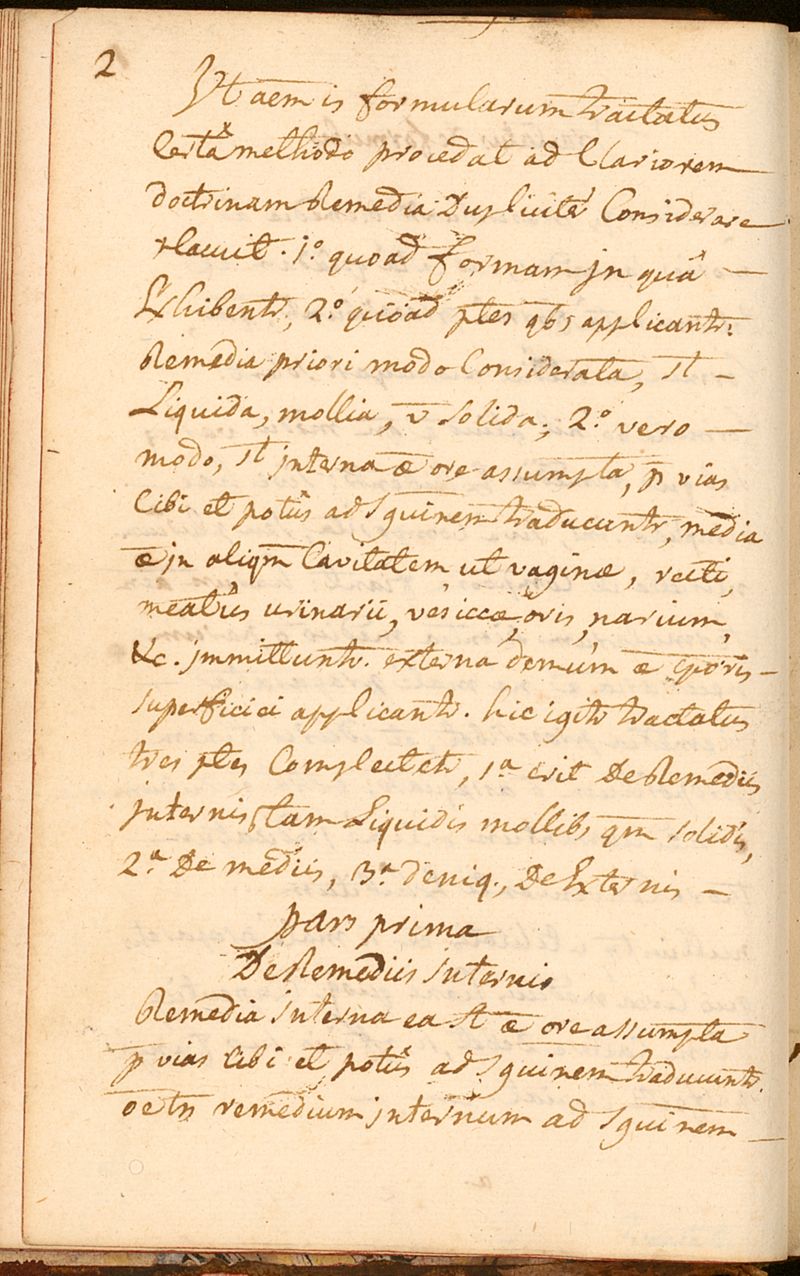 2
Ut aem is formularum tractatus
Certâ methodo procedat ad Clariorem
doctrinam Remedia Dupliciter Considerare
placuit. 1.º quoad formam jn quâ —
Exhibentr, 2.º quoad ptes qbs applicantr:
Remedia priori modo Considerata, st —
Liquida, mollia, v solida; 2.º vero —
modo, st jnterna æ ore assumpta, p vias
Cibi et potûs ad sguinem traducuntr, media
æ jn aliqm Cavitatem ut vaginæ, recti,
meatûs urinarii, vesiccæ, oris, narium,
&c. jmmittuntr. externa demùm æ cporis —
superficiei applicantr. hic igitr tractatus
tres ptes Complectetr, 1.ª erit De Remediis
jnternis tam Liquidis mollibs qm solidis,
2.ª De mediis, 3.ª deniq., De Externis —
pars prima
De Remediis jnternis
Remedia jnterna ea st æ ore assumpta
p vias Cibi et potûs ad sguinem traducuntr.
oe tn remedium jnternum ad sguinem —